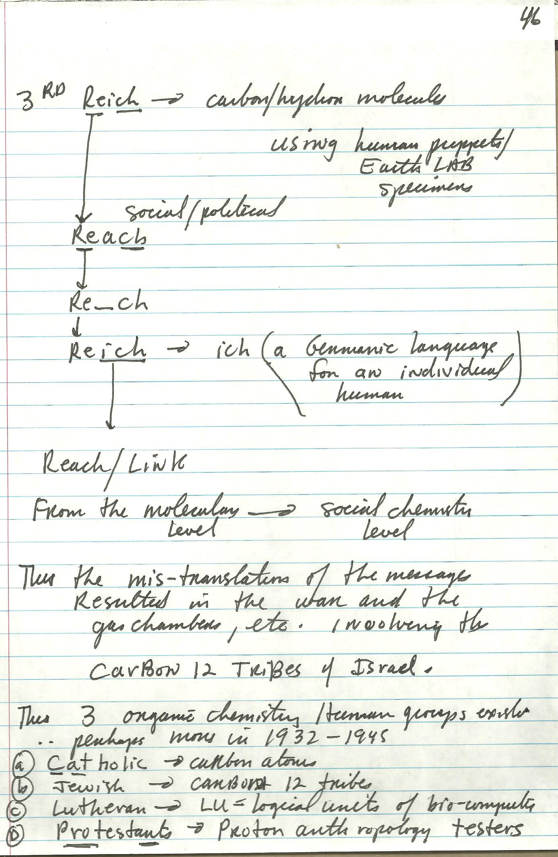 46
3RD Reich → carbon/hydron molecules
using human puppets/
Earth LAB
specimens
social/political
Reach
Re_ch
Reich → ich (a Germanic language
for an individual
human)
Reach/Link
From the molecular → social chemistry
level level
Thus the mis-translation of the messages
Resulted in the war and the
gas chambers, etc. involving the
CARBON 12 TRIBES of Israel.
Thus 3 organic chemistry/Human groups existed
.. perhaps more in 1932-1945
(a) Catholic → carbon atoms
(b) Jewish → CARBON 12 tribes
(c) Lutheran → LU = logical units of bio-computer
(D) Protestants → Proton anthropology testers